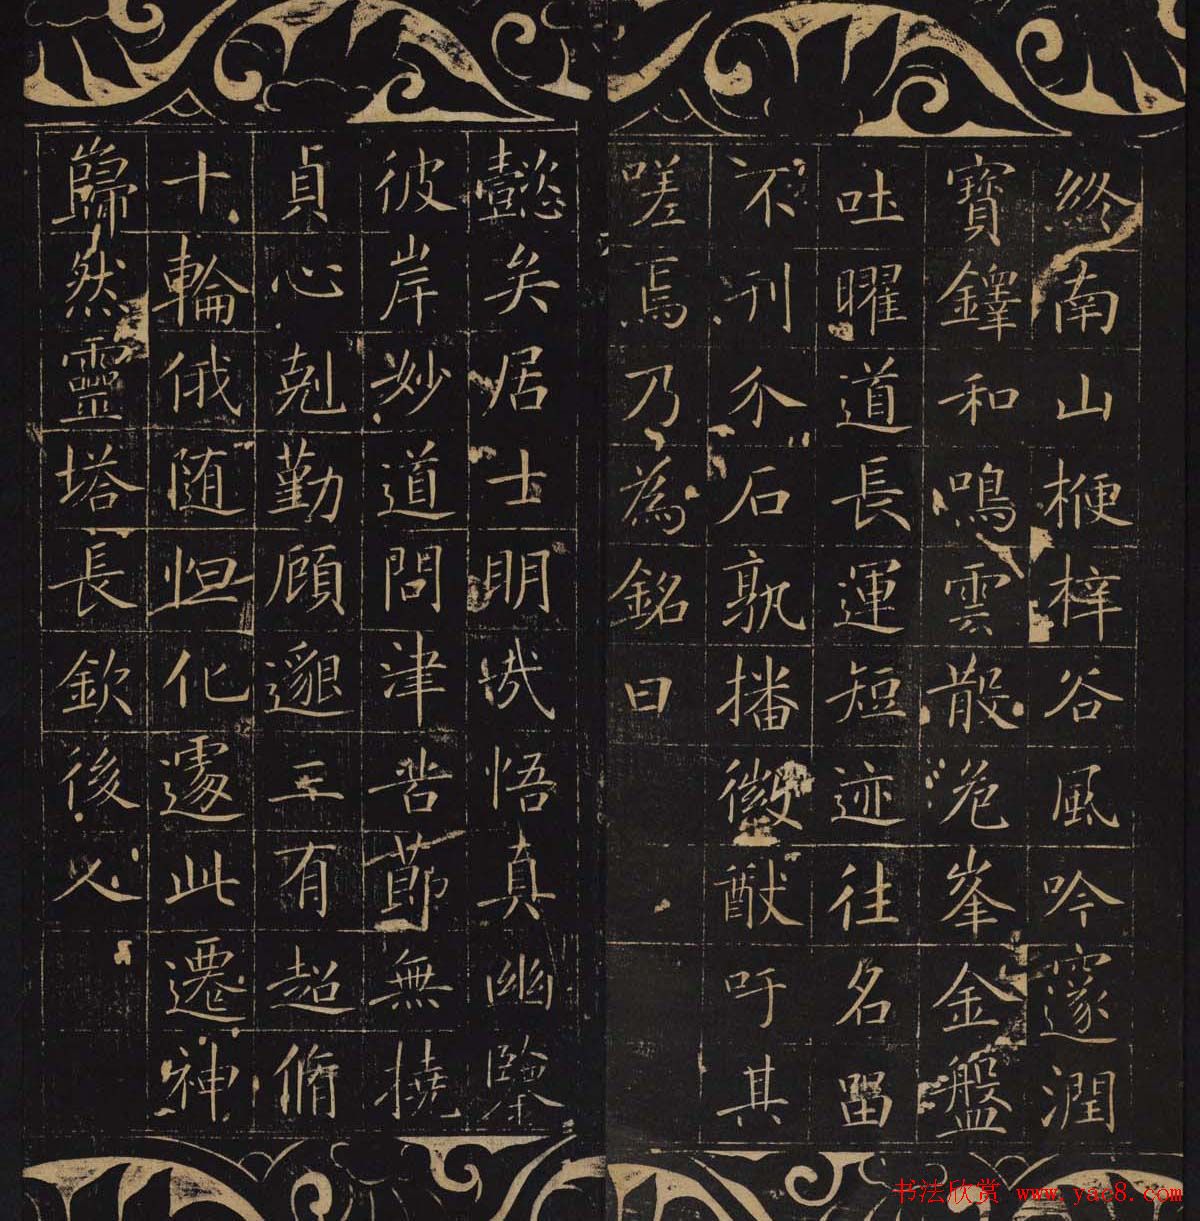 終南山楩梓谷風吟邃潤
寶鐸和鳴雲散危峯金盤
吐曜道長運短迹往名留
不刊介石孰播徽猷吁其
嗟焉乃為銘曰
懿矣居士明哉悟真幽鑒
彼岸妙道問津苦節無撓
貞心剋勤顧邈三有超脩
十輪俄随怛化遽此遷神
巋然靈塔長欽後人
书法欣赏 www.yac8.com